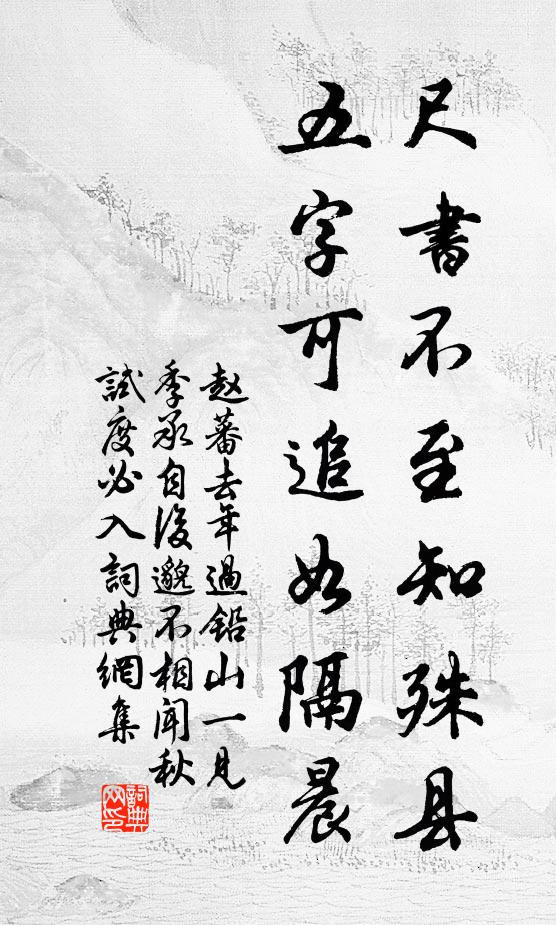 尺書不至知殊县
五字可追如隔晨
赵蕃去年過鉛山一見
季承自後邈不相聞秋
試度必入詞典網集
詞典网印